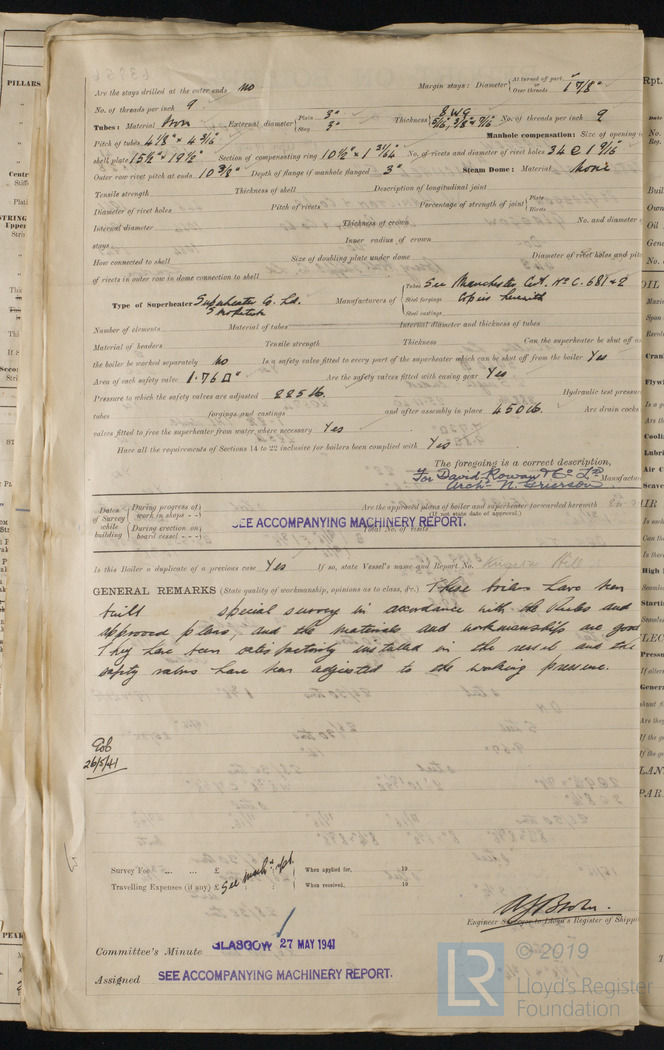 Are the stays drilled at the outer ends No Margin stays: Diameter { At turned off part, or Over threads 1 7/8"
No. of threads per inch 9
Tubes: Material Iron External diameter { Plain 3" Stay 3" Thickness { 8 WG 5/16", 3/8" & 7/16" No. of threads per inch 9
Pitch of tubes 4 1/8" x 4 3/16" Manhole compensation: Size of opening
shell plate 15 1/2" x 19 1/2" Section of compensating ring 10 1/2" x 1 31/64" No. of rivets and diameter of rivet holes 34 @ 1 9/16"
Outer row rivet pitch at ends 10 3/8" Depth of flange if manhole flanged 3" Steam Dome: Material None
Tensile strength Thickness of shell Description of longitudinal joint
Diameter of rivet holes Pitch of rivets Percentage of strength of joint { Plate Rivets
Internal diameter Thickness of crown No. and diameter
stays Inner radius of crown
How connected to shell Size of doubling plate under dome Diameter of rivet holes and pitch
of rivets in outer row in dome connection to shell
Type of Superheater Superheater Co. Ld. Manufacturers of { Tubes Steel forgings Steel castings See Manchester Cert. No C. 681 & 2
Smoketube Copies herewith
Number of elements Material of tubes Internal diameter and thickness of tubes
Material of headers Tensile strength Thickness Can the superheater be shut off
the boiler be worked separately No Is a safety valve fitted to every part of the superheater which can be shut off from the boiler Yes
Area of each safety valve 1.76 □" Are the safety valves fitted with easing gear Yes
Pressure to which the safety valves are adjusted 225 lb. Hydraulic test pressure
tubes forgings and castings and after assembly in place 450 lb. Are drain cocks
valves fitted to free the superheater from water where necessary Yes
Have all the requirements of Sections 14 to 22 inclusive for boilers been complied with Yes
The foregoing is a correct description,
For David Rowan & Co. Ld. Manufactur
Archd. N. Grierson
Dates of Survey while building { During progress of work in shops - - During erection on board vessel - - -
SEE ACCOMPANYING MACHINERY REPORT.
Are the approved plans of boiler and superheater forwarded herewith
(If not state date of approval.)
Total No. of visits
Is this Boiler a duplicate of a previous case Yes If so, state Vessel's name and Report No. Kingston Hill
GENERAL REMARKS (State quality of workmanship, opinions as to class, &c.) These boilers have been
built special survey in accordance with the Rules and
approved plans, and the materials and workmanship are good
They have been satisfactorily installed in the vessel and the
safety valves have been adjusted to the working pressure.
26/5/41
Survey Fee ... ... £ See mach. rpt. When applied for, 19
Travelling Expenses (if any) £ When received, 19
Engineer Surveyor to Lloyd's Register of Shipping
Committee's Minute GLASGOW 27 MAY 1941
Assigned SEE ACCOMPANYING MACHINERY REPORT.
© 2019
LR Lloyd's Register
Foundation
PILLARS
Rpt.